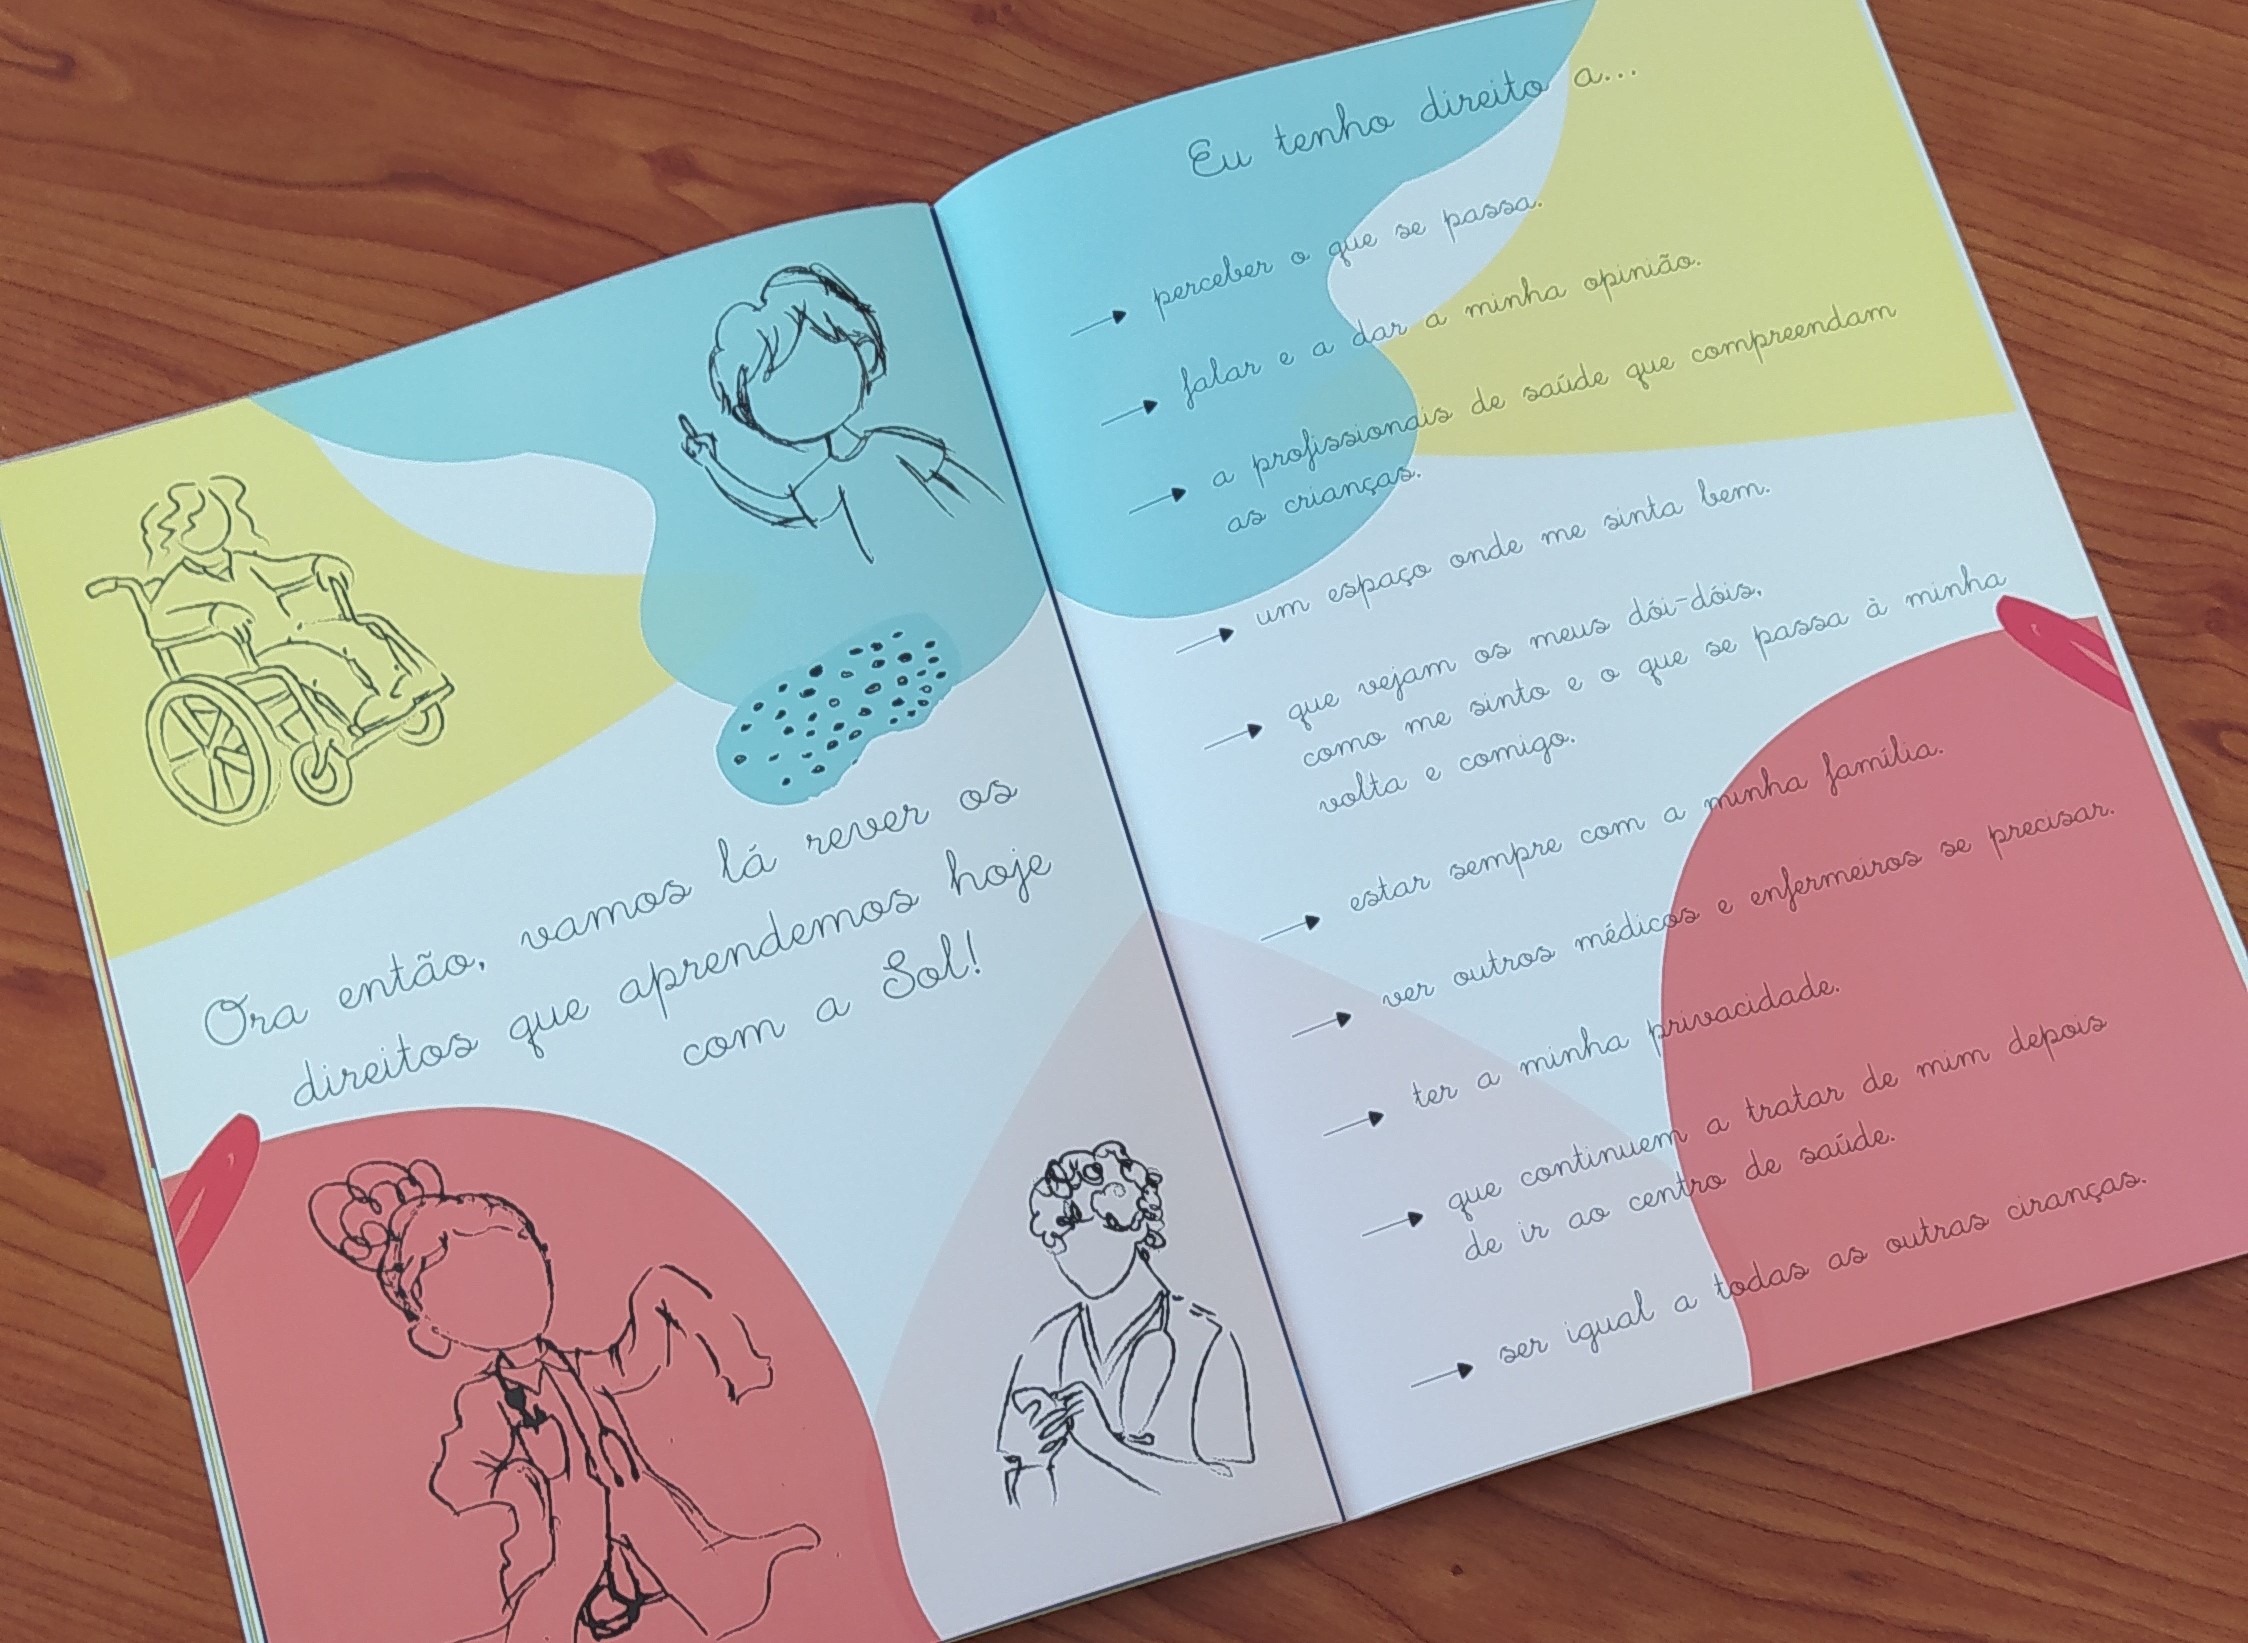 Ora então, vamos lá rever os
direitos que aprendemos hoje
com a Sol!
Eu tenho direito a...
perceber o que se passa.
falar e a dar a minha opinião.
a profissionais de saúde que compreendam
as crianças.
um espaço onde me sinta bem.
que vejam os meus dói-dóis,
como me sinto e o que se passa à minha
volta e comigo.
estar sempre com a minha família.
ver outros médicos e enfermeiros se precisar.
ter a minha privacidade.
que continuem a tratar de mim depois
de ir ao centro de saúde.
ser igual a todas as outras ciranças.